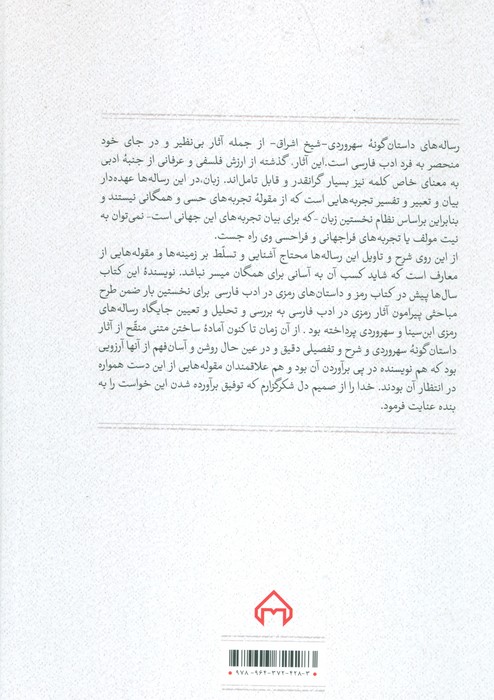 رساله‌های داستان‌گونهٔ سهروردی-شیخ اشراق- از جمله آثار بی‌نظیر و در جای خود
منحصر به فرد ادب فارسی است.این آثار، گذشته از ارزش فلسفی و عرفانی از جنبهٔ ادبی
به معنای خاص کلمه نیز بسیار گرانقدر و قابل تامل‌اند. زبان،در این رساله‌ها عهده‌دار
بیان و تعبیر و تفسیر تجربه‌هایی است که از مقولهٔ تجربه‌های حسی و همگانی نیستند و
بنابراین براساس نظام نخستین زبان -که برای بیان تجربه‌های این جهانی است- نمی‌توان به
نیت مولف یا تجربه‌های فراجهانی و فراحسی وی راه جست.
از این روی شرح و تاویل این رساله‌ها محتاج آشنایی و تسلّط بر زمینه‌ها و مقوله‌هایی از
معارف است که شاید کسب آن به آسانی برای همگان میسر نباشد. نویسندهٔ این کتاب
سال‌ها پیش در کتاب رمز و داستان‌های رمزی در ادب فارسی برای نخستین بار ضمن طرح
مباحثی پیرامون آثار رمزی در ادب فارسی به بررسی و تحلیل و تعیین جایگاه رساله‌های
رمزی ابن‌سینا و سهروردی پرداخته بود . از آن زمان تا کنون آمادهٔ ساختن متنی منقّح از آثار
داستان‌گونهٔ سهروردی و شرح و تفصیلی دقیق و در عین حال روشن و آسان‌فهم از آنها آرزویی
بود که هم نویسنده در پی برآوردن آن بود و هم علاقمندان مقوله‌هایی از این دست همواره
در انتظار آن بودند. خدا را از صمیم دل شکرگزارم که توفیق برآورده شدن این خواست را به
بنده عنایت فرمود.
۹۷۸-۹۶۲-۳۷۲-۲۲۸-۳